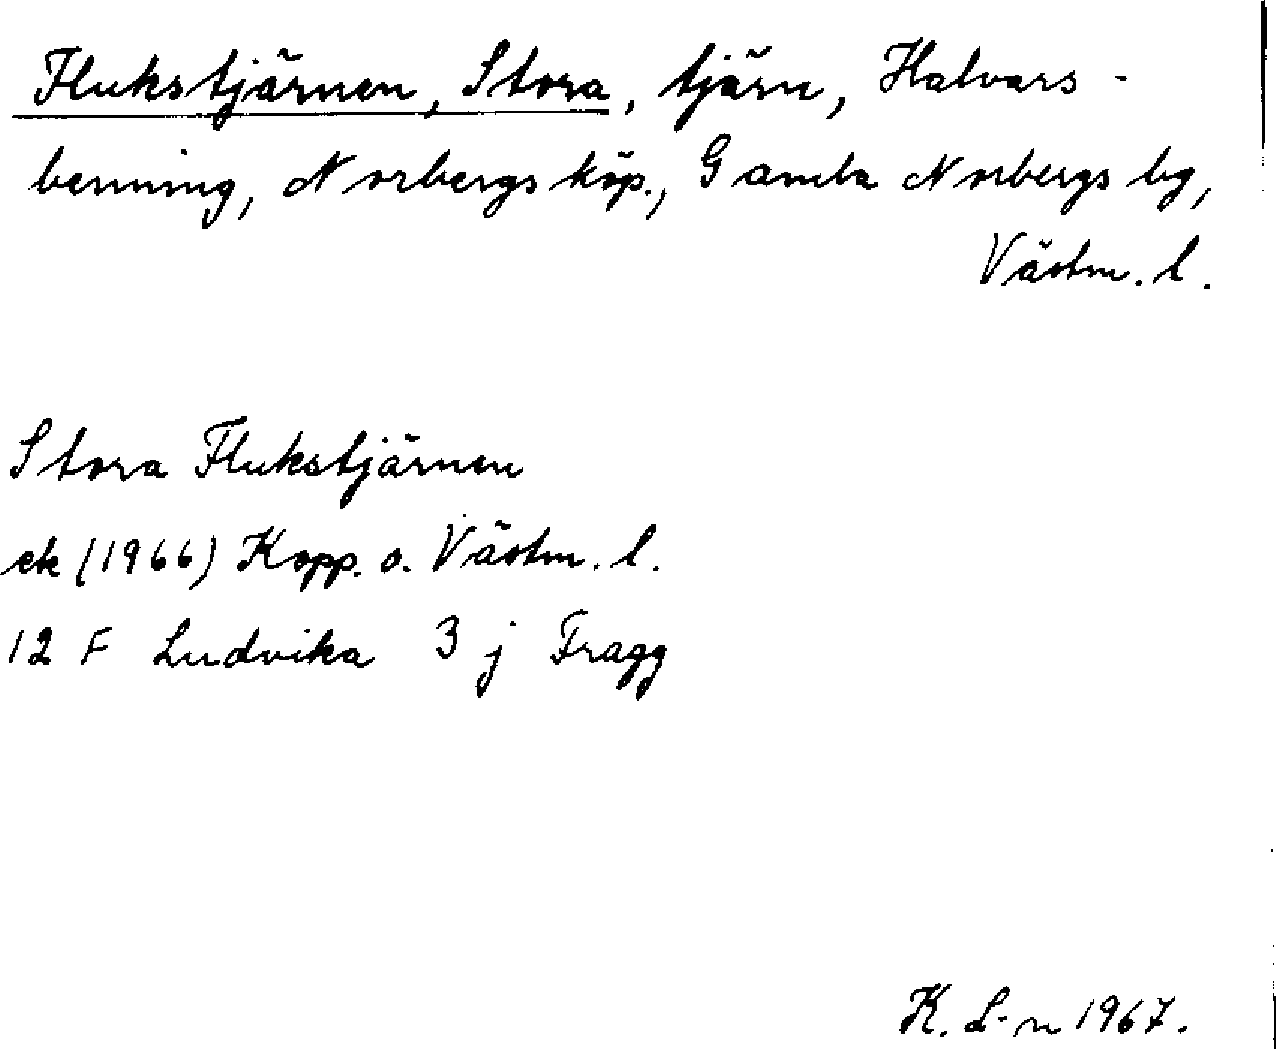 Flukstjärnen, Stora, tjärn, Halvars-
benning, Norbergs köp., Gamla Norbergs bg,
Västm. l.
Stora Flukstjärnen
ek (1966) Kopp. o. Västm. l.
12 F Ludvika 3 j Fragg
K. L-n 1967.